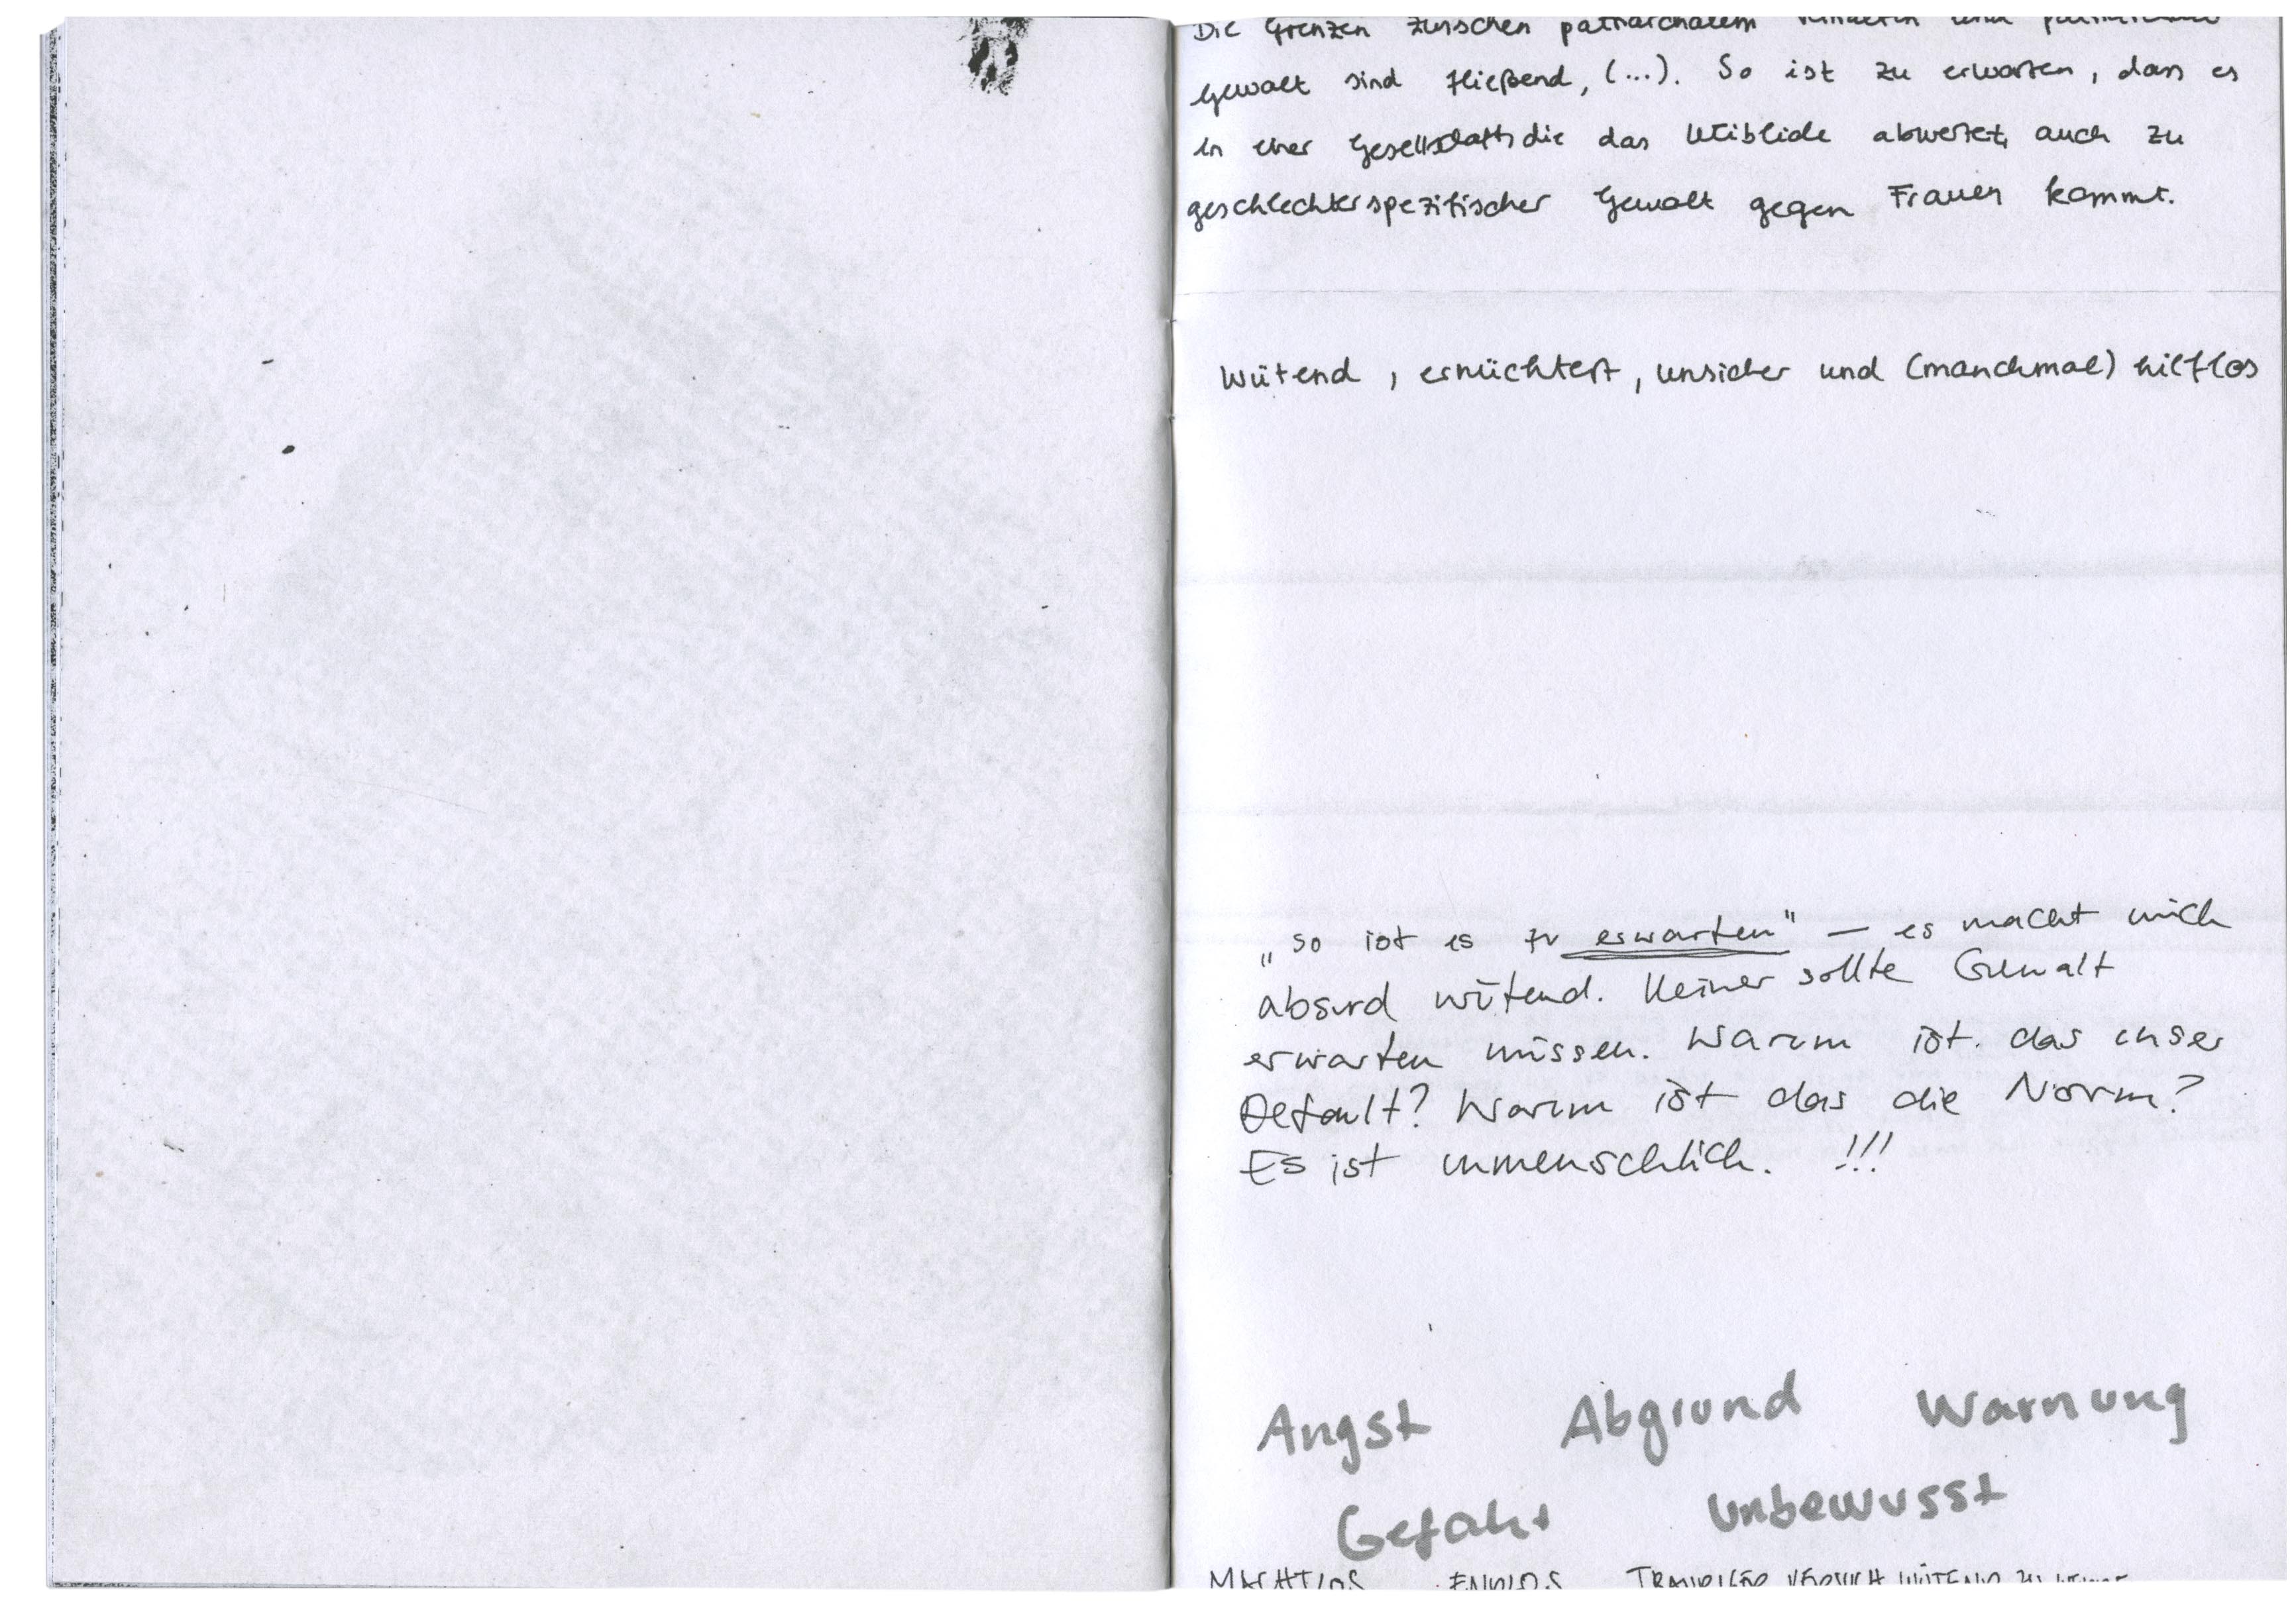 Die Grenzen zwischen patriarchalem und
Gewalt sind fließend, (...). So ist zu erwarten, dass es
in einer Gesellschaft, die das Weibliche abwertet, auch zu
geschlechterspezifischer Gewalt gegen Frauen kommt.
Wütend, ernüchtert, unsicher und (manchmal) hilflos
„so ist es zu erwarten" — es macht mich
absurd wütend. Keiner sollte Gewalt
erwarten müssen. Warum ist das unser
Default? Warum ist das die Norm?
Es ist unmenschlich. !!!
Angst Abgrund Warnung
Gefahr Unbewusst
MACHTLOS ENDLOS TRAURIGER VERSUCH WÜTEND ZU